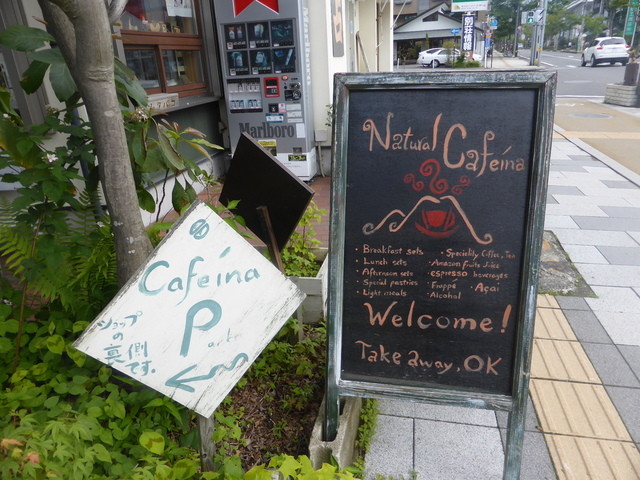 Natural Cafeína
• Breakfast sets
• Lunch sets
• Afternoon sets
• Special pastries
• Light meals
• Speciality Coffee, tea
• Amazon fruits Juice
• espresso beverages
• Frappé • Açai
• Alcohol
Welcome!
Take away, OK
Cafeína
P
ショップの
裏側
です。
Marlboro
別荘情報